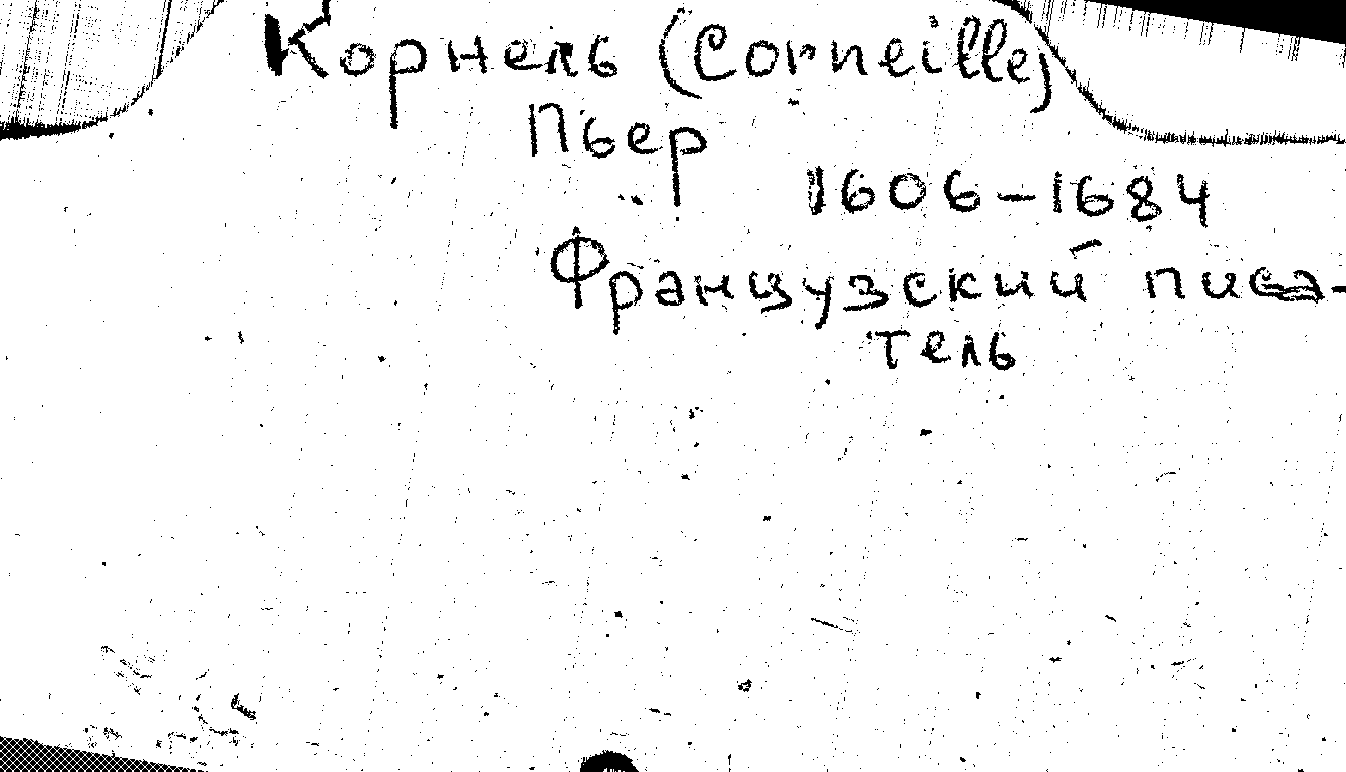 Корнель (Corneille)
Пьер
1606-1684
Французский писа-
тель